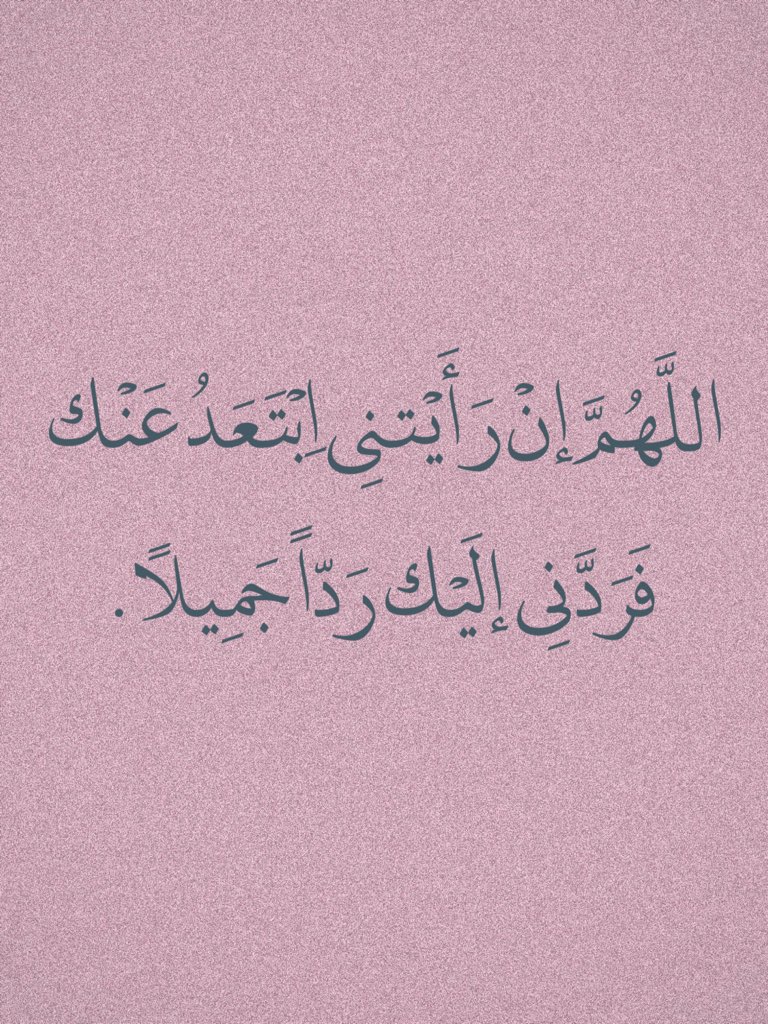 اللَّهُمَّ إنْ رَأَيْتنِي اِبْتَعَدُ عَنْك
فَرَدَّنِي إلَيْك رَدّاً جَمِيلاً .